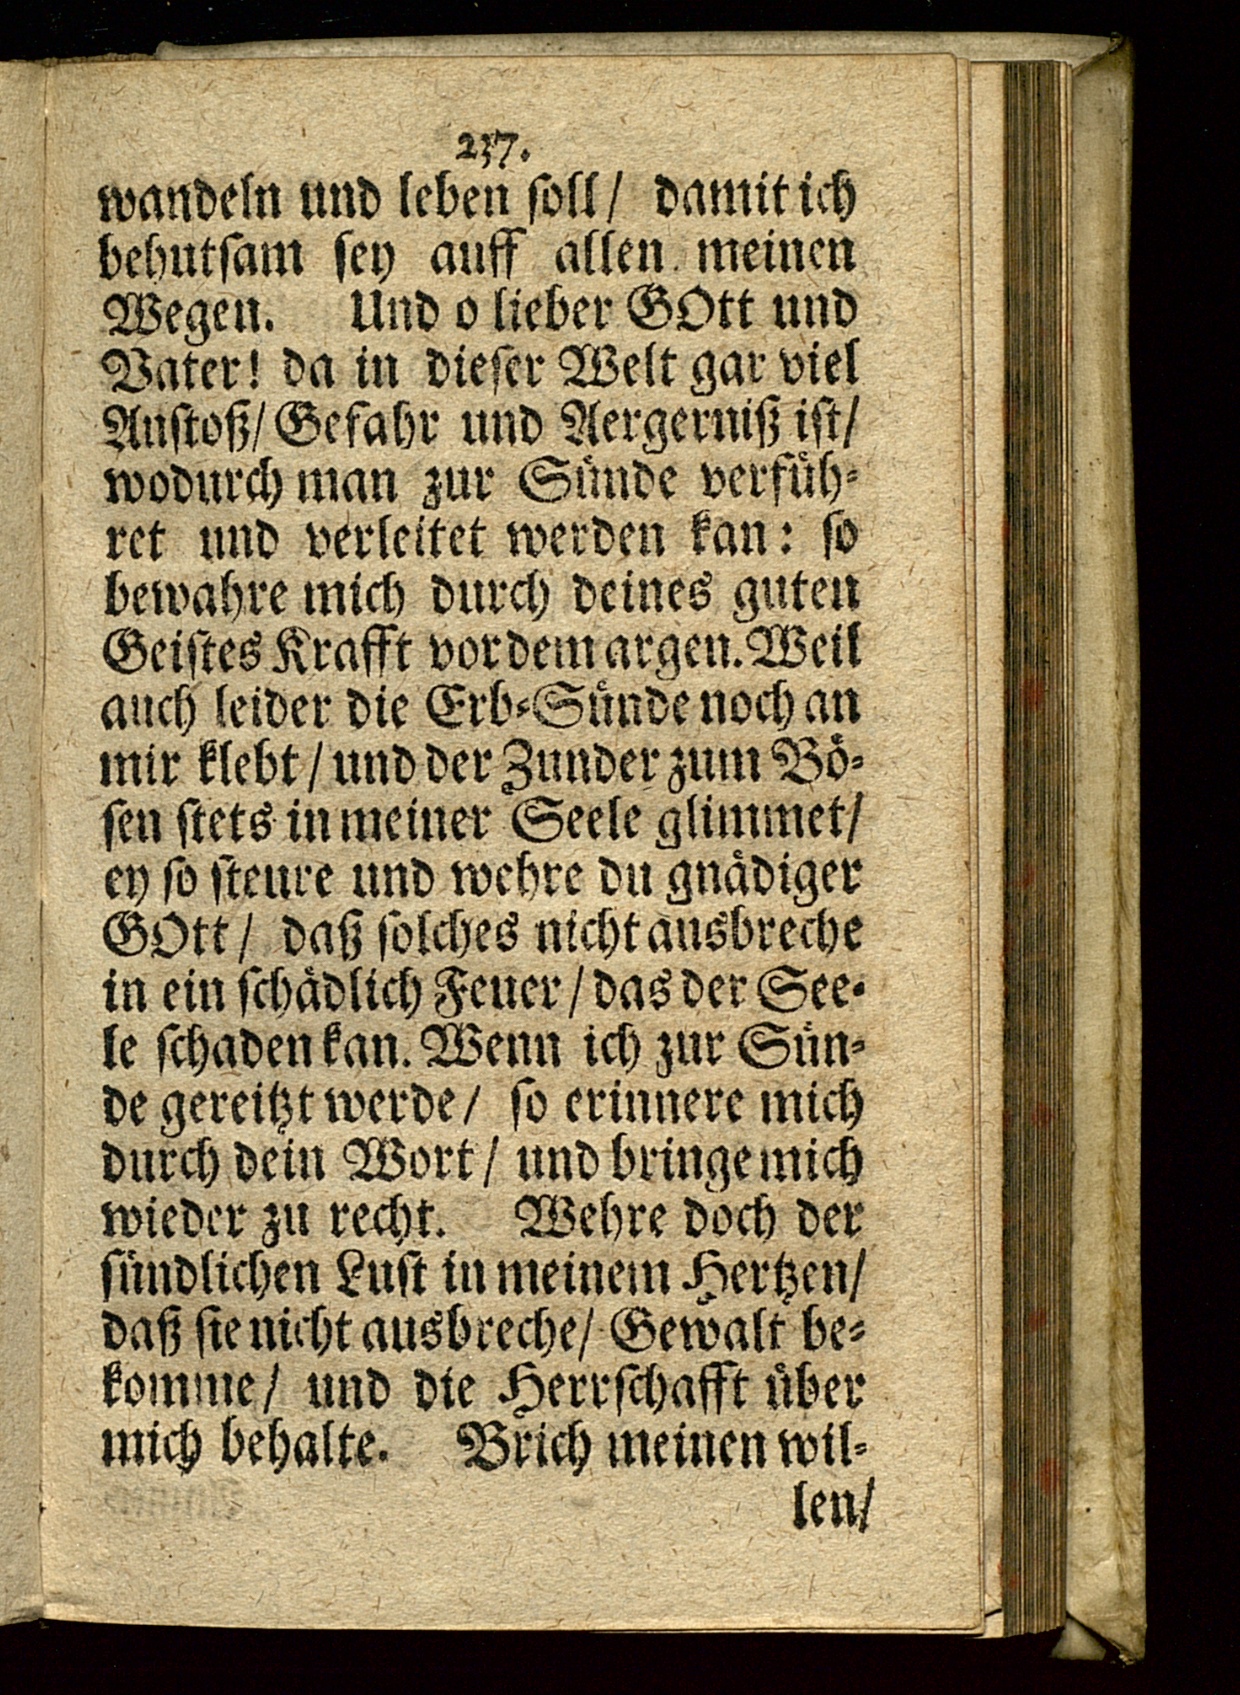 237.
wandeln und leben ſoll/ damit ich
behutſam ſey auff allen meinen
Wegen. Und o lieber GOtt und
Vater! da in dieſer Welt gar viel
Anſtoß/ Gefahr und Aergerniß iſt/
wodurch man zur Sünde verfüh-
ret und verleitet werden kan: ſo
bewahre mich durch deines guten
Geiſtes Krafft vor dem argen. Weil
auch leider die Erb-Sünde noch an
mir klebt / und der Zunder zum Bö-
ſen ſtets in meiner Seele glimmet/
ey ſo ſteure und wehre du gnädiger
GOtt / daß ſolches nicht ausbreche
in ein ſchädlich Feuer / das der See-
le ſchaden kan. Wenn ich zur Sün-
de gereitzt werde / ſo erinnere mich
durch dein Wort / und bringe mich
wieder zu recht. Wehre doch der
ſündlichen Luſt in meinem Hertzen/
daß ſie nicht ausbreche/ Gewalt be-
komme/ und die Herrſchafft über
mich behalte. Brich meinen wil-
len/